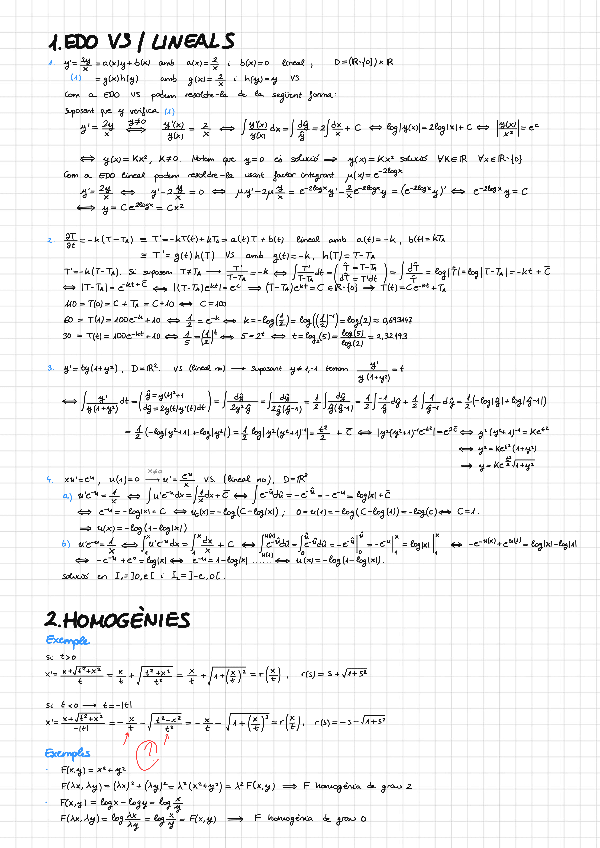 1. EDO VS / LINEALS
1. y' = 2y/x = a(x)y + b(x) amb a(x) = 2/x i b(x) = 0 lineal, D = (ℝ\{0}) × ℝ
(1) = g(x)h(y) amb g(x) = 2/x i h(y) = y VS
Com a EDO VS podem resoldre-la de la següent forma:
Suposant que y verifica (1)
y' = 2y/x ⟺ (y≠0) y'(x)/y(x) = 2/x ⟺ ∫ y'(x)/y(x) dx = ∫ dŷ/ŷ = 2∫ dx/x + C ⟺ log|y(x)| = 2log|x| + C ⟺ |y(x)/x²| = e^C
⟺ y(x) = Kx², K≠0. Notem que y=0 és solució ⟹ y(x) = Kx² solució ∀K∈ℝ ∀x∈ℝ\{0}
Com a EDO lineal podem resoldre-la usant factor integrant μ(x) = e^{-2logx}
y' = 2y/x ⟺ y' - 2y/x = 0 ⟺ μy' - 2μy/x = e^{-2logx}y' - 2/x e^{-2logx}y = (e^{-2logx}y)' ⟺ e^{-2logx}y = C
⟺ y = Ce^{2logx} = Cx²
2. ∂T/∂t = -k(T-T_A) ≡ T' = -kT(t) + kT_A = a(t)T + b(t) lineal amb a(t) = -k, b(t) = kT_A
≡ T' = g(t)h(T) VS amb g(t) = -k, h(T) = T-T_A
T' = -k(T-T_A). Si suposem T≠T_A ⟶ T'/(T-T_A) = -k ⟺ ∫ T'/(T-T_A) dt = (T̂ = T-T_A, dT̂ = T'dt) = ∫ dT̂/T̂ = log|T̂| = log|T-T_A| = -kt + C̄
⟺ |T-T_A| = e^{-kt+C̄} ⟺ |(T-T_A)e^{kt}| = e^C̄ ⟹ (T-T_A)e^{kt} = C∈ℝ\{0} ⟶ T(t) = Ce^{-kt} + T_A
110 = T(0) = C + T_A = C + 10 ⟺ C = 100
60 = T(1) = 100e^{-k} + 10 ⟺ 1/2 = e^{-k} ⟺ k = -log(1/2) = log((1/2)^{-1}) = log(2) ≈ 0,693147
30 = T(t) = 100e^{-kt} + 10 ⟺ 1/5 = (1/2)^t ⟺ 5 = 2^t ⟺ t = log₂(5) = log(5)/log(2) = 2,32193
3. y' = ty(1+y²), D = ℝ². VS (lineal no) ⟶ suposant y≠1,-1 tenim y'/(y(1+y²)) = t
⟺ ∫ y'/(y(1+y²)) dt = (ŷ = y(t)²+1, dŷ = 2y(t)y'(t)dt) = ∫ dŷ/(2y²ŷ) = ∫ dŷ/(2ŷ(ŷ-1)) = 1/2 ∫ dŷ/(ŷ(ŷ-1)) = 1/2 ∫ -1/ŷ dŷ + 1/2 ∫ 1/(ŷ-1) dŷ = 1/2(-log|ŷ| + log|ŷ-1|)
= 1/2(-log|y²+1| + log|y²|) = 1/2 log|y²(y²+1)^{-1}| = t²/2 + C̄ ⟺ |y²(y²+1)^{-1}e^{-t²}| = e^{2C̄} ⟺ y²(y²+1)^{-1} = Ke^{t²}
⟺ y² = Ke^{t²}(1+y²)
⟹ y = Ke^{t²/2}√(1+y²)
4. xu' = e^u, u(1) = 0 ⟶ (x≠0) u' = e^u/x VS. (lineal no), D = ℝ²
a) u'e^{-u} = 1/x ⟺ ∫ u'e^{-u}dx = ∫ 1/x dx + C̄ ⟺ ∫ e^{-û}dû = -e^{-û} = -e^{-u} = log|x| + C̄
⟺ e^{-u} = -log|x| + C ⟺ u(x) = -log(C-log|x|); 0 = u(1) = -log(C-log(1)) = -log(C) ⟺ C = 1.
⟹ u(x) = -log(1-log|x|)
b) u'e^{-u} = 1/x ⟺ ∫₁^x u'e^{-u}dx = ∫₁^x dx/x + C ⟺ ∫_{u(1)}^{u(x)} e^{-û}dû = ∫₀^u e^{-û}dû = -e^{-û}|₀^û = -e^{-u}|₁^x = log|x| |₁^x ⟺ -e^{-u(x)} + e^{u(1)} = log|x| - log|1|
⟺ -e^{-u} + e^0 = log|x| ⟺ e^{-u} = 1-log|x| ...... ⟺ u(x) = -log(1-log|x|).
solució en I₁ = ]0,e[ i I₂ = ]-e,0[.
2. HOMOGÈNIES
Exemple.
Si t>0
x' = (x+√(t²+x²))/t = x/t + √((t²+x²)/t²) = x/t + √(1+(x/t)²) = r(x/t), r(s) = s + √(1+s²)
Si t<0 ⟶ t = -|t|
x' = (x+√(t²+x²))/(-|t|) = -x/t - √((t²-x²)/t²) = -x/t - √(1+(x/t)²) = r(x/t), r(s) = -s - √(1+s²)
Exemples
· F(x,y) = x² + y²
F(λx,λy) = (λx)² + (λy)² = λ²(x²+y²) = λ²F(x,y) ⟹ F homogènia de grau 2
· F(x,y) = logx - logy = log x/y
F(λx,λy) = log λx/λy = log x/y = F(x,y) ⟹ F homogènia de grau 0